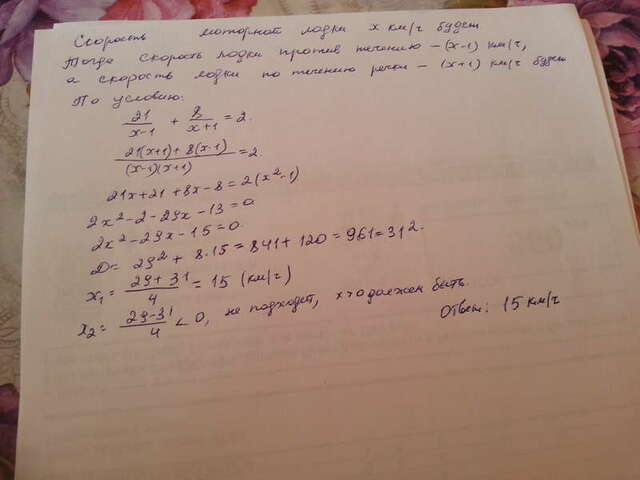 Скорость моторной лодки x км/ч будет
Тогда скорость лодки против течению – (x-1) км/ч,
а скорость лодки по течению реки – (x+1) км/ч будет
По условию:
21/(x-1) + 8/(x+1) = 2.
(21(x+1)+8(x-1))/((x-1)(x+1)) = 2.
21x+21+8x-8=2(x²-1)
2x²-2-29x-13=0
2x²-29x-15=0.
D= 29²+8·15=841+120=961=31².
x₁= (29+31)/4 = 15 (км/ч)
x₂= (29-31)/4 < 0, не подходит, x>0 должен быть.
Ответ: 15 км/ч